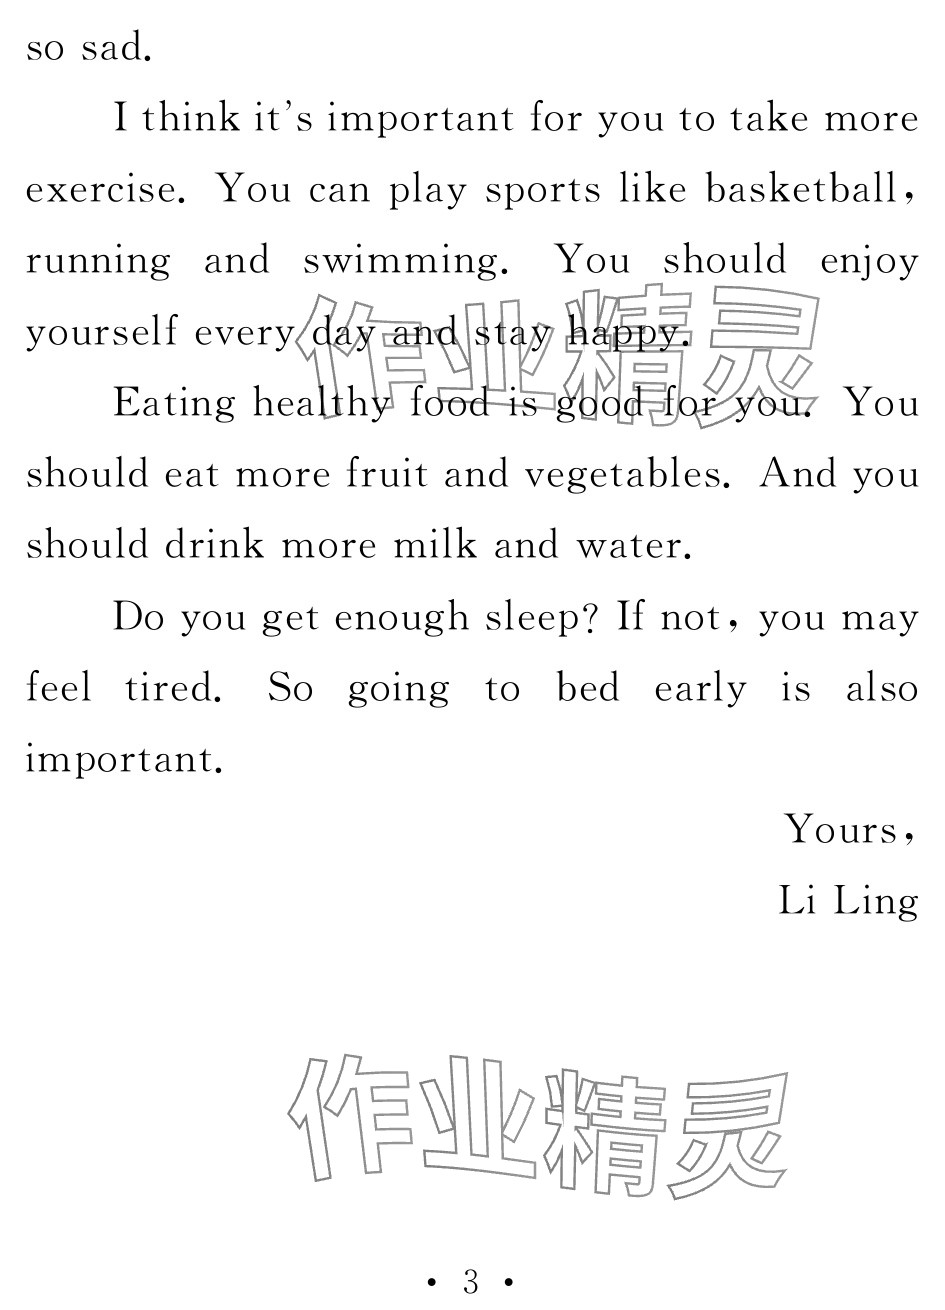 so sad.
I think it's important for you to take more
exercise. You can play sports like basketball,
running and swimming. You should enjoy
yourself every day and stay happy.
作业精灵
Eating healthy food is good for you. You
should eat more fruit and vegetables. And you
should drink more milk and water.
Do you get enough sleep? If not, you may
feel tired. So going to bed early is also
important.
Yours,
Li Ling
作业精灵
• 3 •